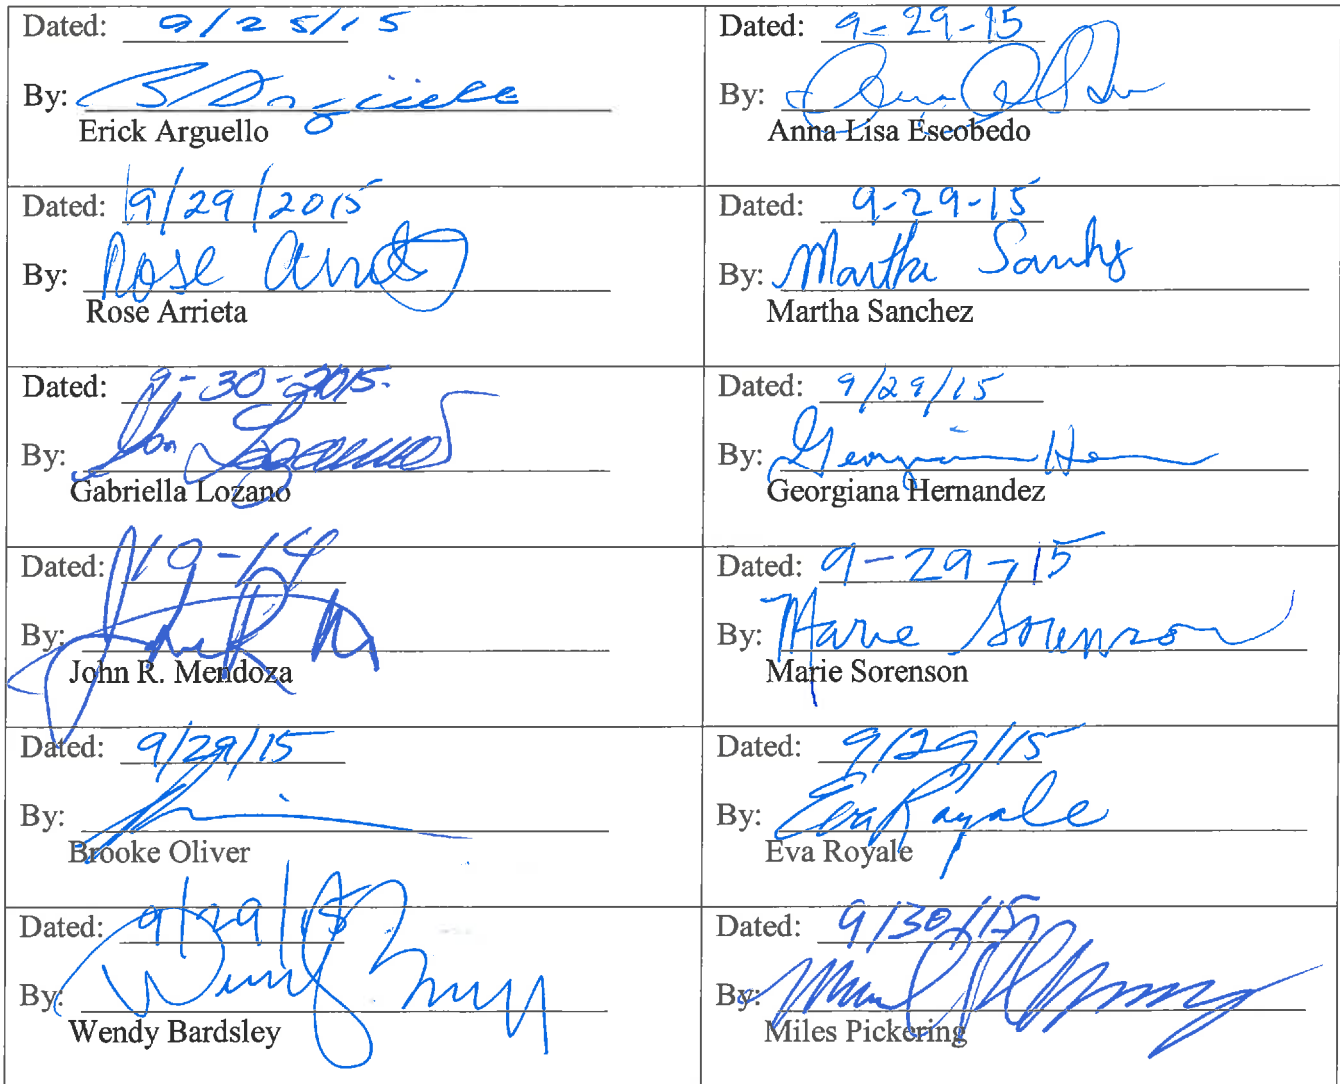 Dated: 9/25/15
By:
Erick Arguello
Dated: 9-29-15
By:
Anna Lisa Escobedo
Dated: 9/29/2015
By: Rose
Rose Arrieta
Dated: 9-29-15
By: Martha
Martha Sanchez
Dated: 9-30-2015.
By:
Gabriella Lozano
Dated: 9/29/15
By:
Georgiana Hernandez
Dated:
By:
John R. Mendoza
Dated: 9-29-15
By: Marie Sorenson
Marie Sorenson
Dated: 9/29/15
By:
Brooke Oliver
Dated: 9/29/15
By: Eva Royale
Eva Royale
Dated: 9/29/15
By:
Wendy Bardsley
Dated: 9/30/15
By:
Miles Pickering